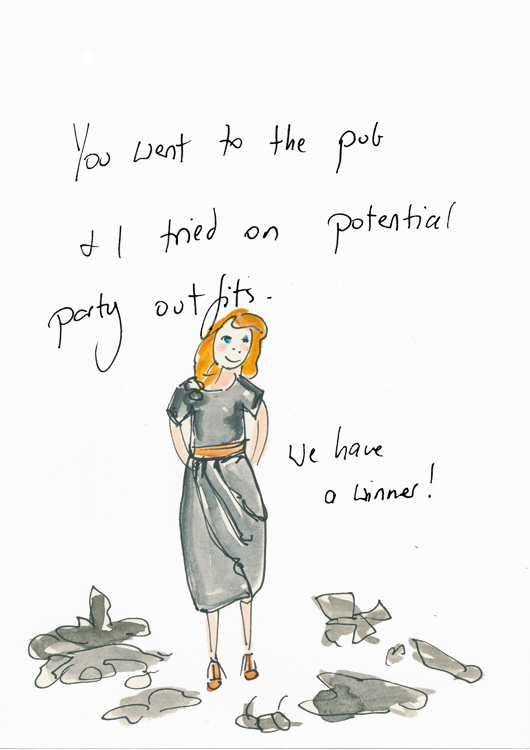 You went to the pub
& I tried on potential
party outfits.
We have
a winner!